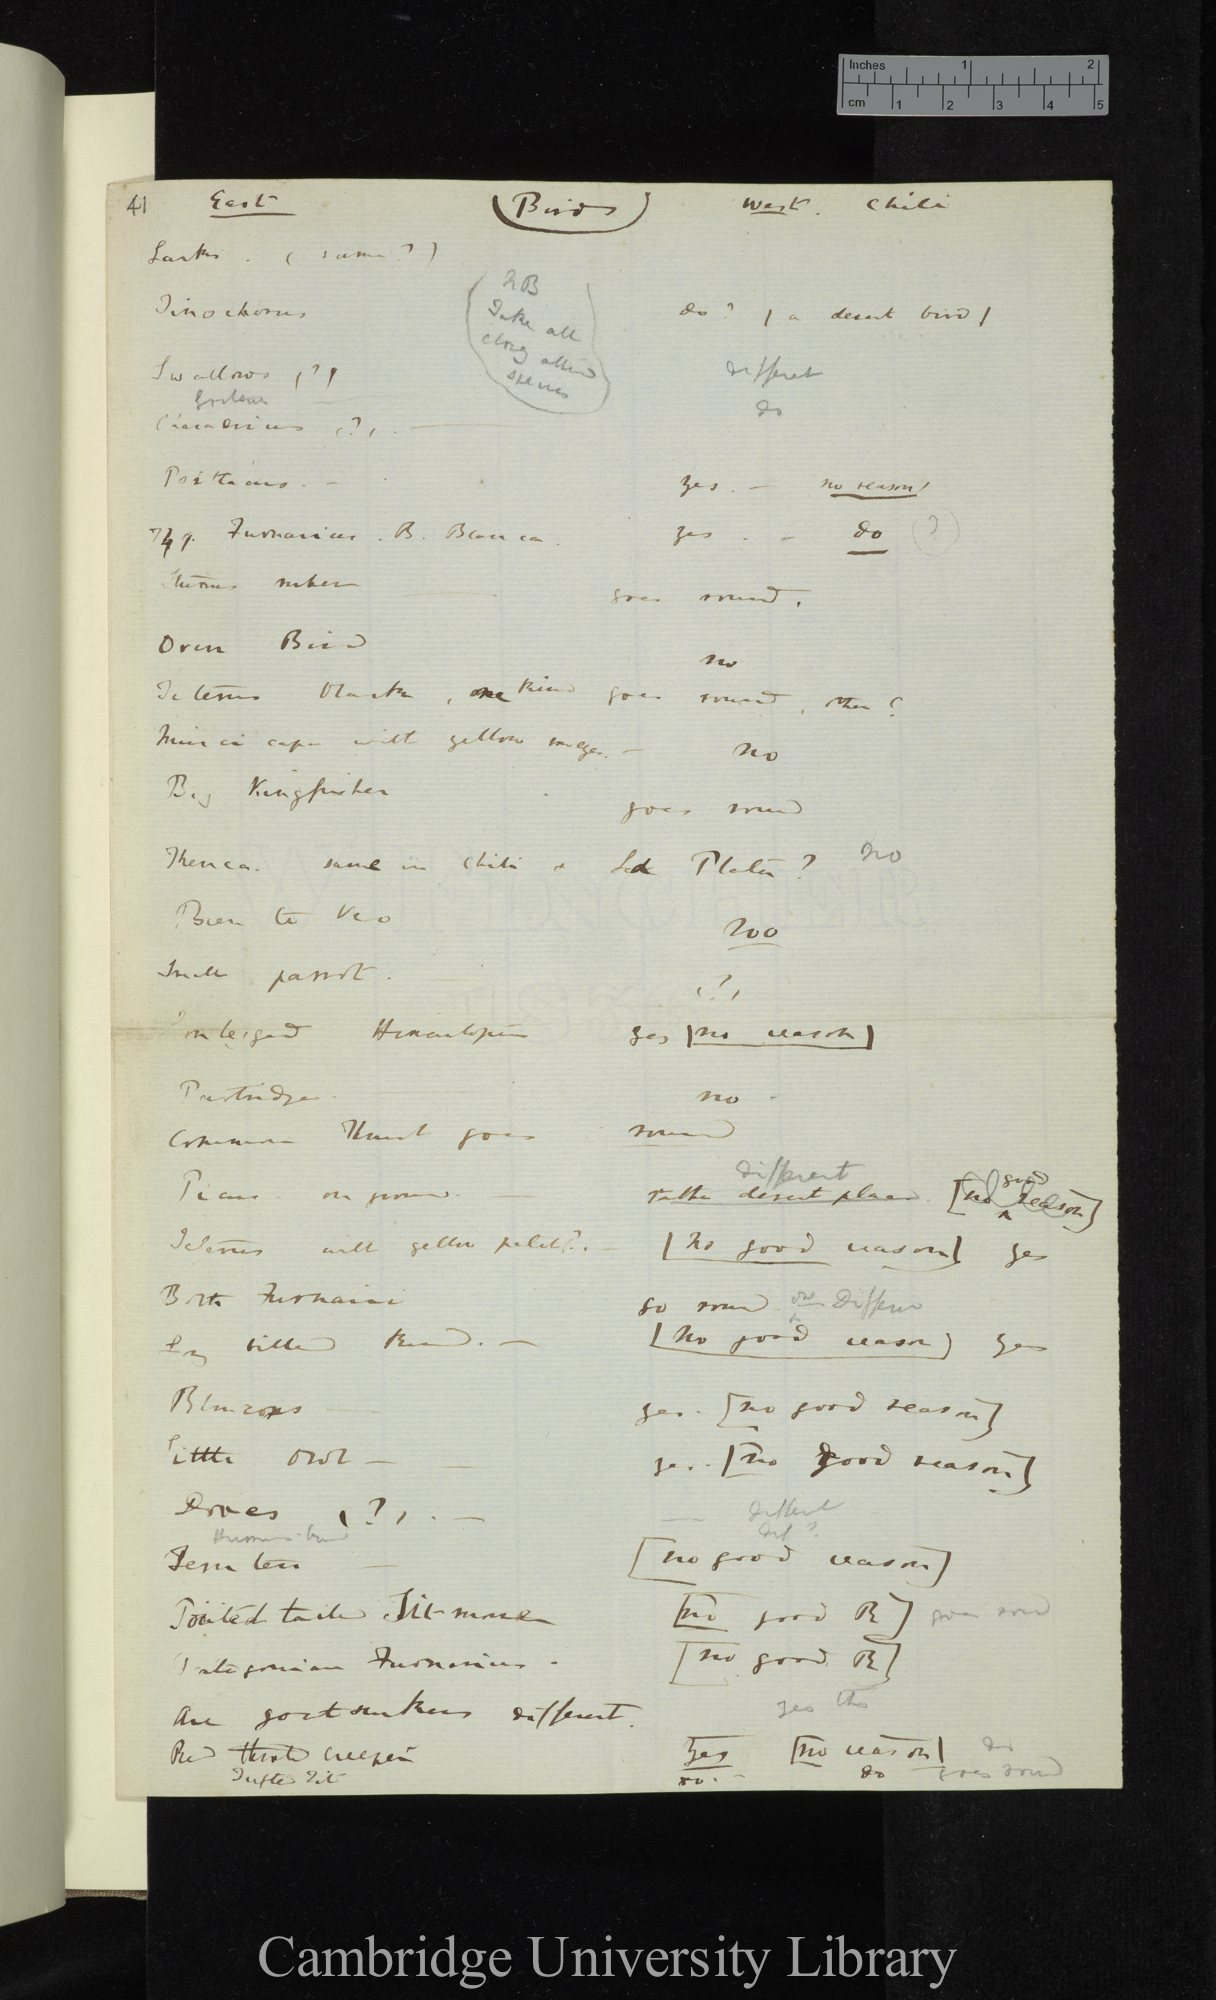 Inches 1 2
cm 1 2 3 4 5
41 East (Birds) West. Chili
Larks. (same?)
NB
Take all
closely allied
species
Tinochorus do? (a desert bird)
Swallows (?) different
do
Charadrius (?). —
yes. — no reason!
Furnarius. B. Blanca. yes. - do (?)
Sturnus ruber — goes round.
Oven Bird no
Icterus black, one kind goes round, other?
Muscicapa with yellow — no
Big Kingfisher goes round
Thenca. same in Chili & La Plata? No
Bien te Veo Noo
Small parrot. (?)
Long legged yes [no reason]
Partridge. no.
Common Thrush goes round
different
Picus on ground. — rather desert place [no good reason]
Icterus with yellow — [No good reason] yes
Both Furnarii go round or
Long billed Kind. — [No good reason] yes
yes. [no good reason]
Little owl — yes. [no good reason]
Doves (?). — — different
dif?
[no good reason]
Pointed tailed Tit-mouse [no good R] goes round
Patagonian Furnarius. [no good R]
Are goatsuckers different. yes
Red throated creeper Yes [no reason] do
Tufted Tit do. — do goes round
Cambridge University Library